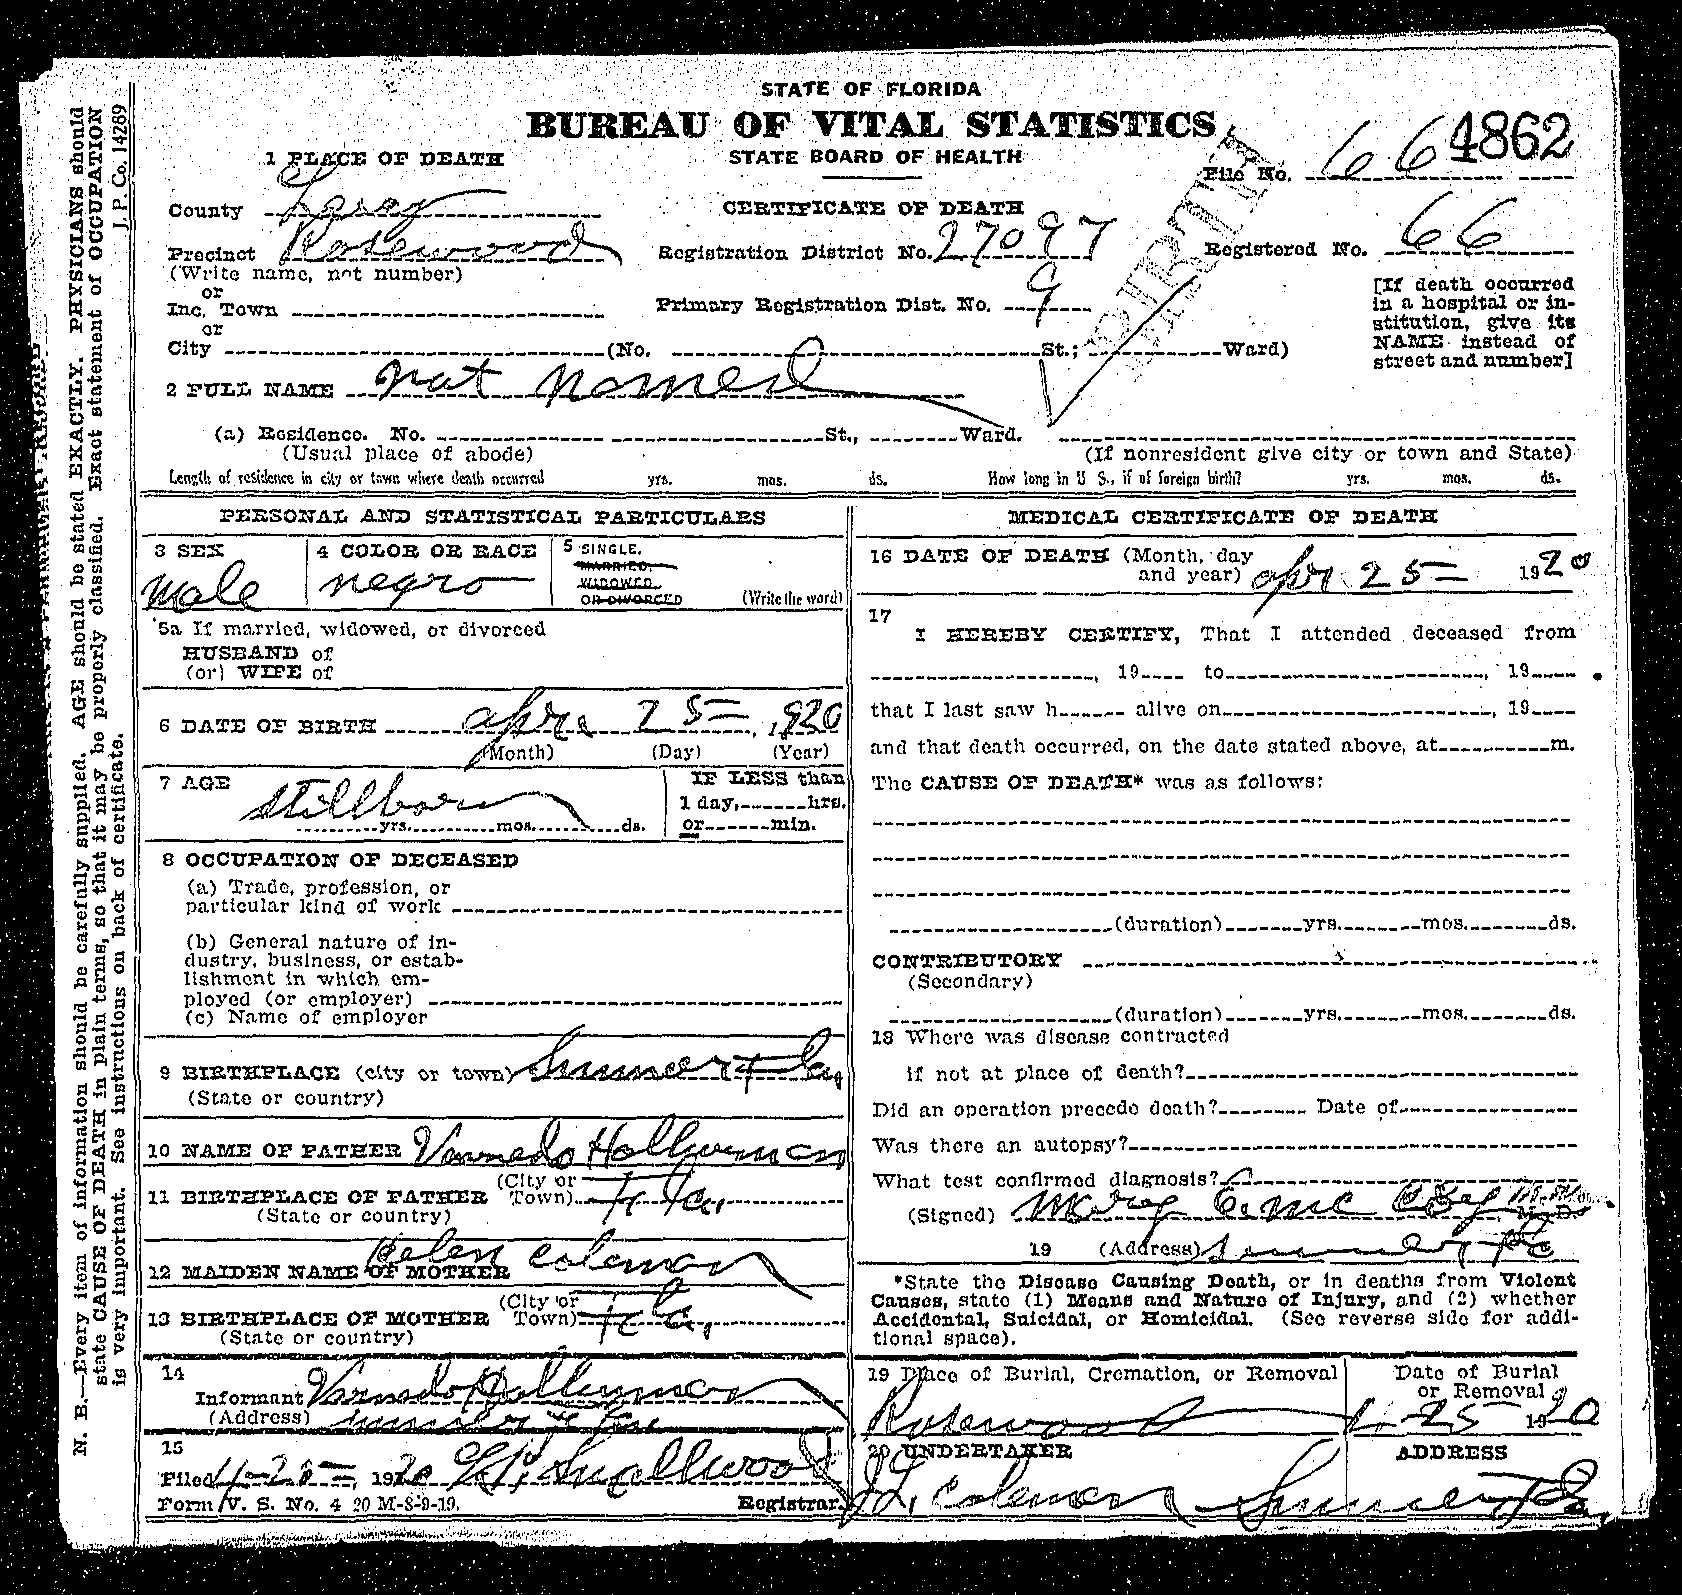 STATE OF FLORIDA
BUREAU OF VITAL STATISTICS
STATE BOARD OF HEALTH
CERTIFICATE OF DEATH
1 PLACE OF DEATH
File No. 66 4862
County Levy
Precinct Rosewood
(Write name, not number)
Registration District No. 27097
Registered No. 66
or
Inc. Town
Primary Registration Dist. No. 9
[If death occurred
in a hospital or in-
stitution, give its
NAME instead of
street and number]
or
City (No. St.; Ward)
2 FULL NAME not named
(a) Residence. No. St., Ward.
(Usual place of abode) (If nonresident give city or town and State)
Length of residence in city or town where death occurred yrs. mos. ds. How long in U S., if of foreign birth? yrs. mos. ds.
PERSONAL AND STATISTICAL PARTICULARS
3 SEX
Male
4 COLOR OR RACE
negro
5 SINGLE,
MARRIED,
WIDOWED
OR DIVORCED (Write the word)
5a If married, widowed, or divorced
HUSBAND of
(or) WIFE of
6 DATE OF BIRTH apr 25, 1920
(Month) (Day) (Year)
7 AGE
Stillborn
yrs. mos. ds.
IF LESS than
1 day, hrs.
or min.
8 OCCUPATION OF DECEASED
(a) Trade, profession, or
particular kind of work
(b) General nature of in-
dustry, business, or estab-
lishment in which em-
ployed (or employer)
(c) Name of employer
9 BIRTHPLACE (city or town) Sumner Fla,
(State or country)
10 NAME OF FATHER Varnedo Hallyman
11 BIRTHPLACE OF FATHER (City or Town) Fla,
(State or country)
12 MAIDEN NAME OF MOTHER Helen Coleman
13 BIRTHPLACE OF MOTHER (City or Town) Fla,
(State or country)
14
Informant Varnedo
(Address) Sumner Fla
15
Filed 4-25, 1920 Smallwood
Registrar.
Form V. S. No. 4 20 M-8-9-19.
MEDICAL CERTIFICATE OF DEATH
16 DATE OF DEATH (Month, day
and year) apr 25 1920
17
I HEREBY CERTIFY, That I attended deceased from
, 19 to , 19
that I last saw h alive on , 19
and that death occurred, on the date stated above, at m.
The CAUSE OF DEATH* was as follows:
(duration) yrs. mos. ds.
CONTRIBUTORY
(Secondary)
(duration) yrs. mos. ds.
18 Where was disease contracted
if not at place of death?
Did an operation precede death? Date of
Was there an autopsy?
What test confirmed diagnosis?
(Signed) Mary E. Mc Coy M. D.
19 (Address) Sumner Fla
*State the Disease Causing Death, or in deaths from Violent
Causes, state (1) Means and Nature of Injury, and (2) whether
Accidental, Suicidal, or Homicidal. (See reverse side for addi-
tional space).
19 Place of Burial, Cremation, or Removal
Rosewood
Date of Burial
or Removal
25 1920
20 UNDERTAKER
J. L. Coleman
ADDRESS
Sumner Fla.
N. B.—Every item of information should be carefully supplied. AGE should be stated EXACTLY. PHYSICIANS should
state CAUSE OF DEATH in plain terms, so that it may be properly classified. Exact statement of OCCUPATION
is very important. See instructions on back of certificate.
J. P. Co. 14289